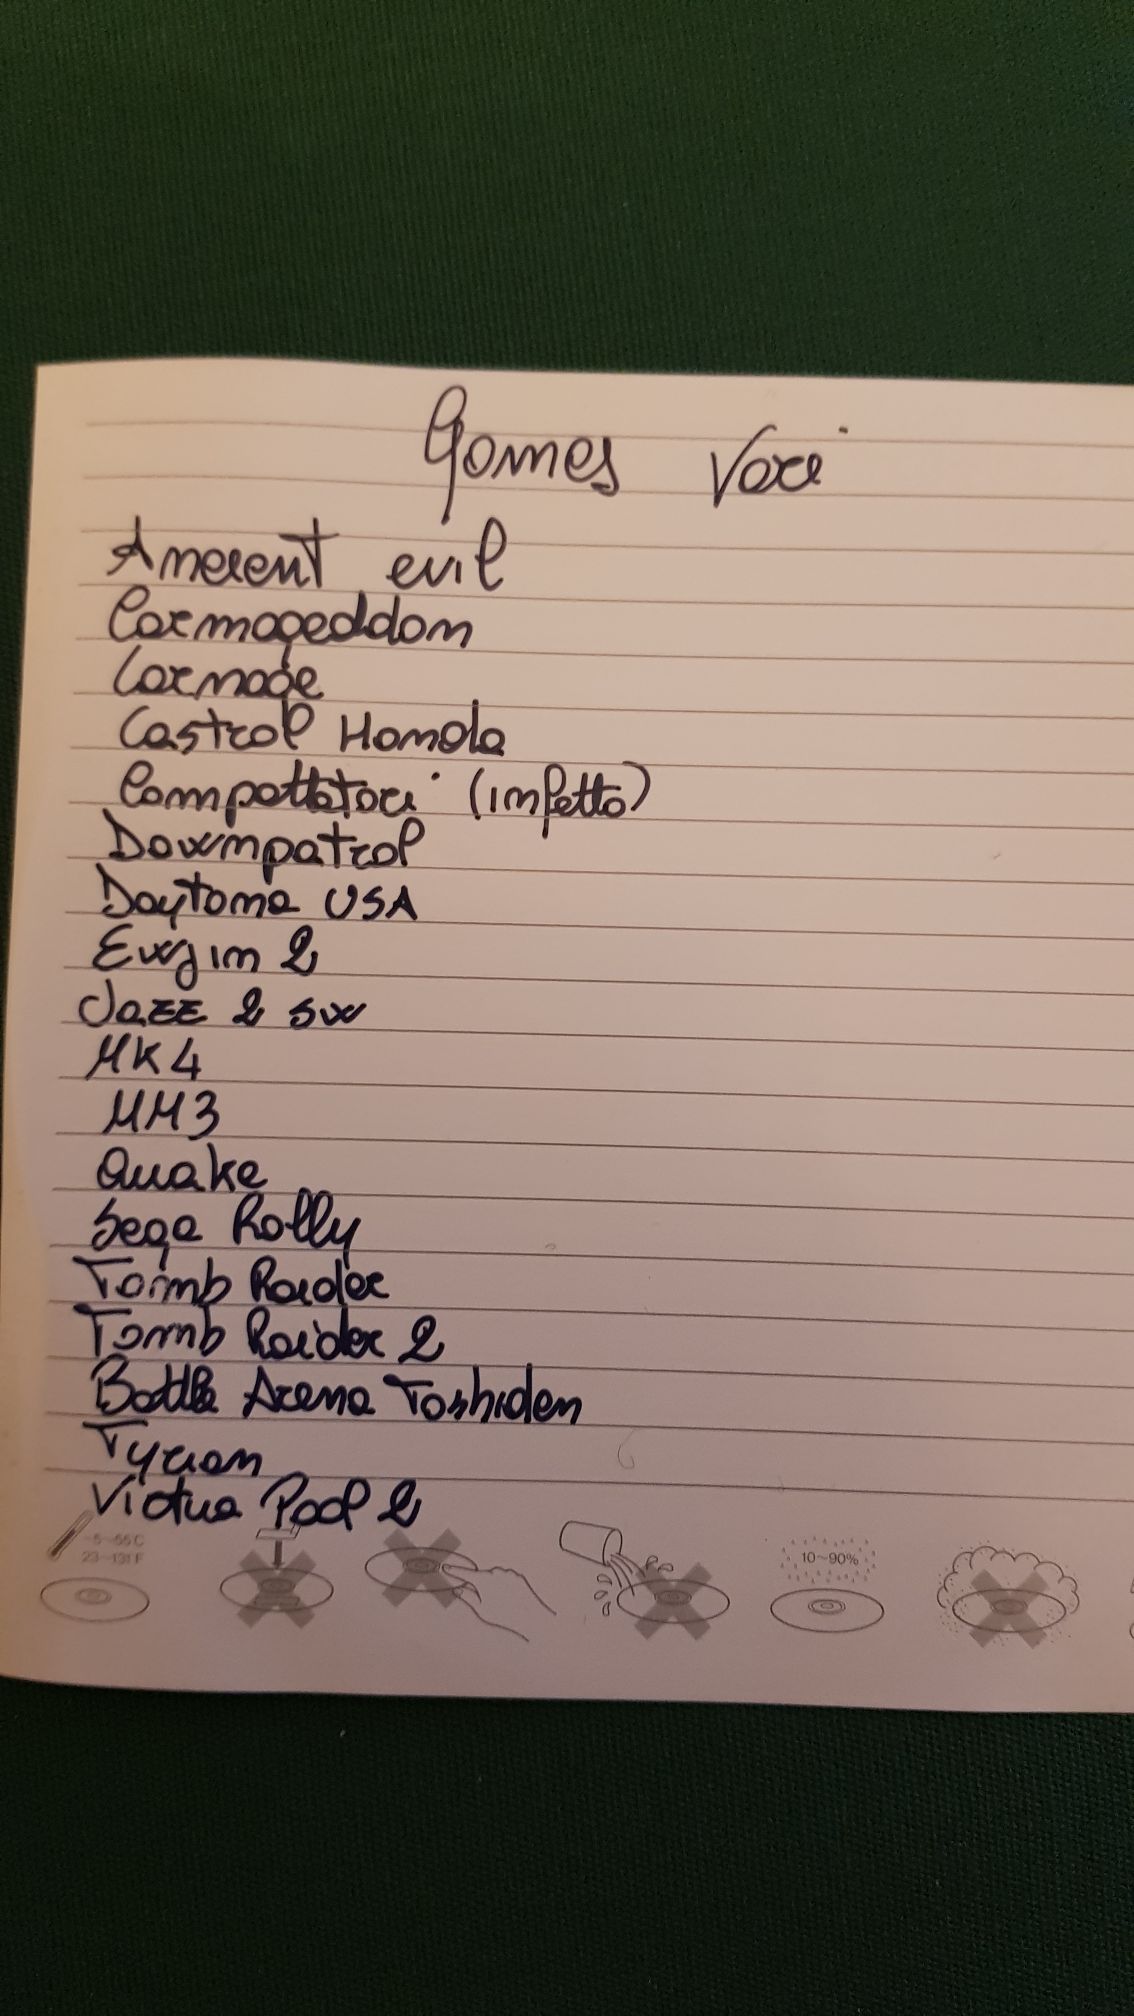 Games Vari
Anerent evil
Carmageddon
Carnage
Castrol Honda
Compattatori (infetto)
Downpatrol
Daytona USA
Ewjim 2
Jazz 2 sw
MK4
MM3
Quake
Sega Rally
Tomb Raider
Tomb Raider 2
Battle Arena Toshiden
Tyrian
Virtua Pool 2
-5~55C
23~131F
10~90%